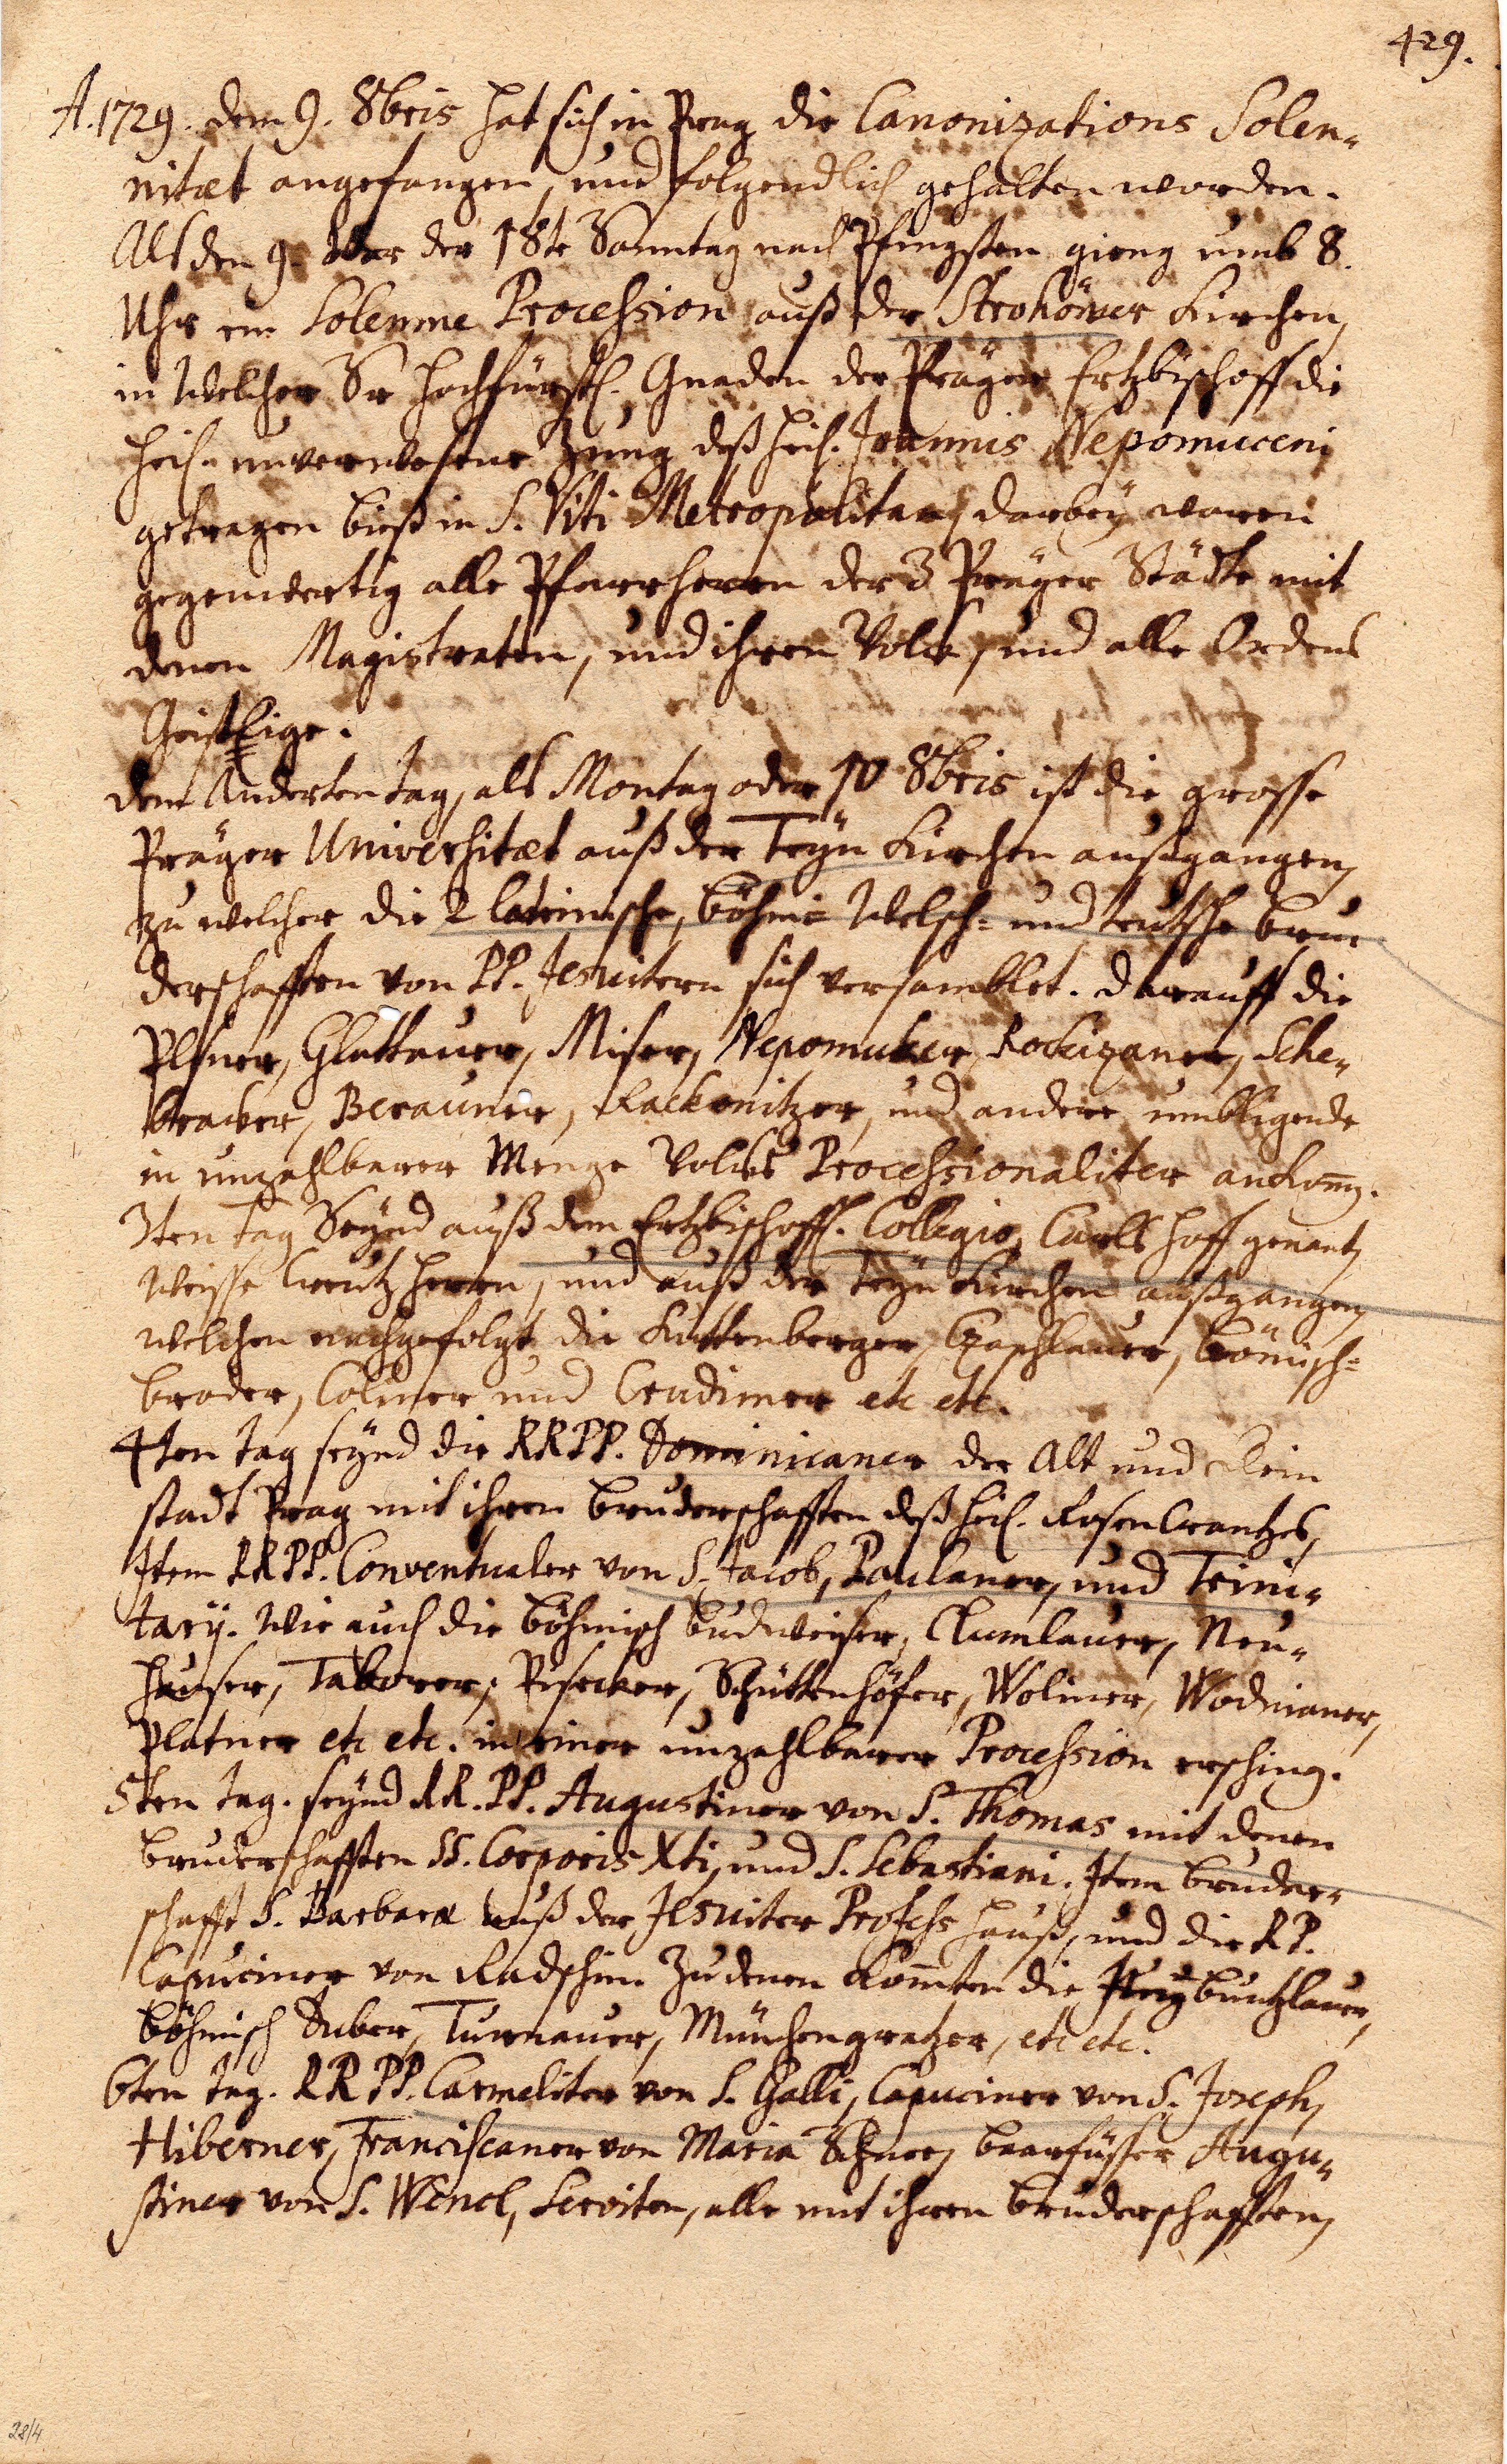 429.
A. 1729. dem 9. 8bris hat sich in Prag die Canonizations Solen-
nitæt angefangen, und folgendlich gehalten worden.
Alß den 9. War der 18te Sonntag nach Pfingsten gieng umb 8.
Uhr ein Solenne Procession auß der Strohöwer Kirchen,
in Welcher Sr hochfürstl. Gnaden der Präger Ertzbischoff die
heil. unverwesene Zung deß heil. Joannis Nepomuceni
getragen bieß in S. Viti Metropolitan, darbey waren
gegenwertig alle Pfarrherrn der 3 Präger Städte mit
denen Magistraten, und ihren Volck, und alle Ordens
Geistlige.
dem Anderten tag, als Montag oder 10 8bris ist die grosse
Präger Universitæt auß der Teyn Kirchen außgangen,
zu welcher die 2 lateinische, böhm- Welsch- und teutsche bru
derschafften von PP. Jesuitern sich versamblet. darauff die
Plsner, Glattauer, Miser, Nepomuker, Rockizaner, Sche-
bracker, Berauner, Rackonitzer, und andere umbligende
in unzahlbarer Menge Volcks Processionaliter ankom̄.
3ten tag Seynd auß dem Ertzbischoffl. Collegio, Carls hoff genant,
Weisse Creutz herrn, und auß der Teyn Kirchen außgangen,
welchen nachgefolgt die Kuttenberger, Czaschlauer, bömisch-
broder, Coliner und Crudimer etc etc.
4ten tag seynd die RRPP. Dominicaner der Alt und Klein
stadt Prag mit ihren bruderschafften deß heil. Rosen Crantzes,
Item RRPP. Conventualer von S. Jacob, Paulaner, und Trini-
tarÿ. Wie auch die böhmisch budweiser, Crumlauer, Neu-
hauser, Taborer, Pisecker, Schüttenhöfer, Woliner, Wodnianer,
Platner etc etc. in einer unzahlbarer Procession erschin̄.
5ten tag. seynd RR. PP. Augustiner von S. Thomas mit denen
bruderschafften SS. Corporis Xti, und S. Sebastiani. Item bruder-
schafft S. Barbaræ auß der Jesuiter Profess hauß, und die RP.
Capuciner von Radschin. Zu denen kom̄ten die Jungbuntzlauer,
böhmisch Duber, Turnauer, Münchengratzer, etc etc.
6ten tag. RR PP. Carmeliter von S. Galli, Capuciner von S. Joseph,
Hiberner, Franciscaner von Maria Schnee, baarfüsser Augu-
stiner von S. Wencl, Serviten, alle mit ihren bruderschafften,
28/4